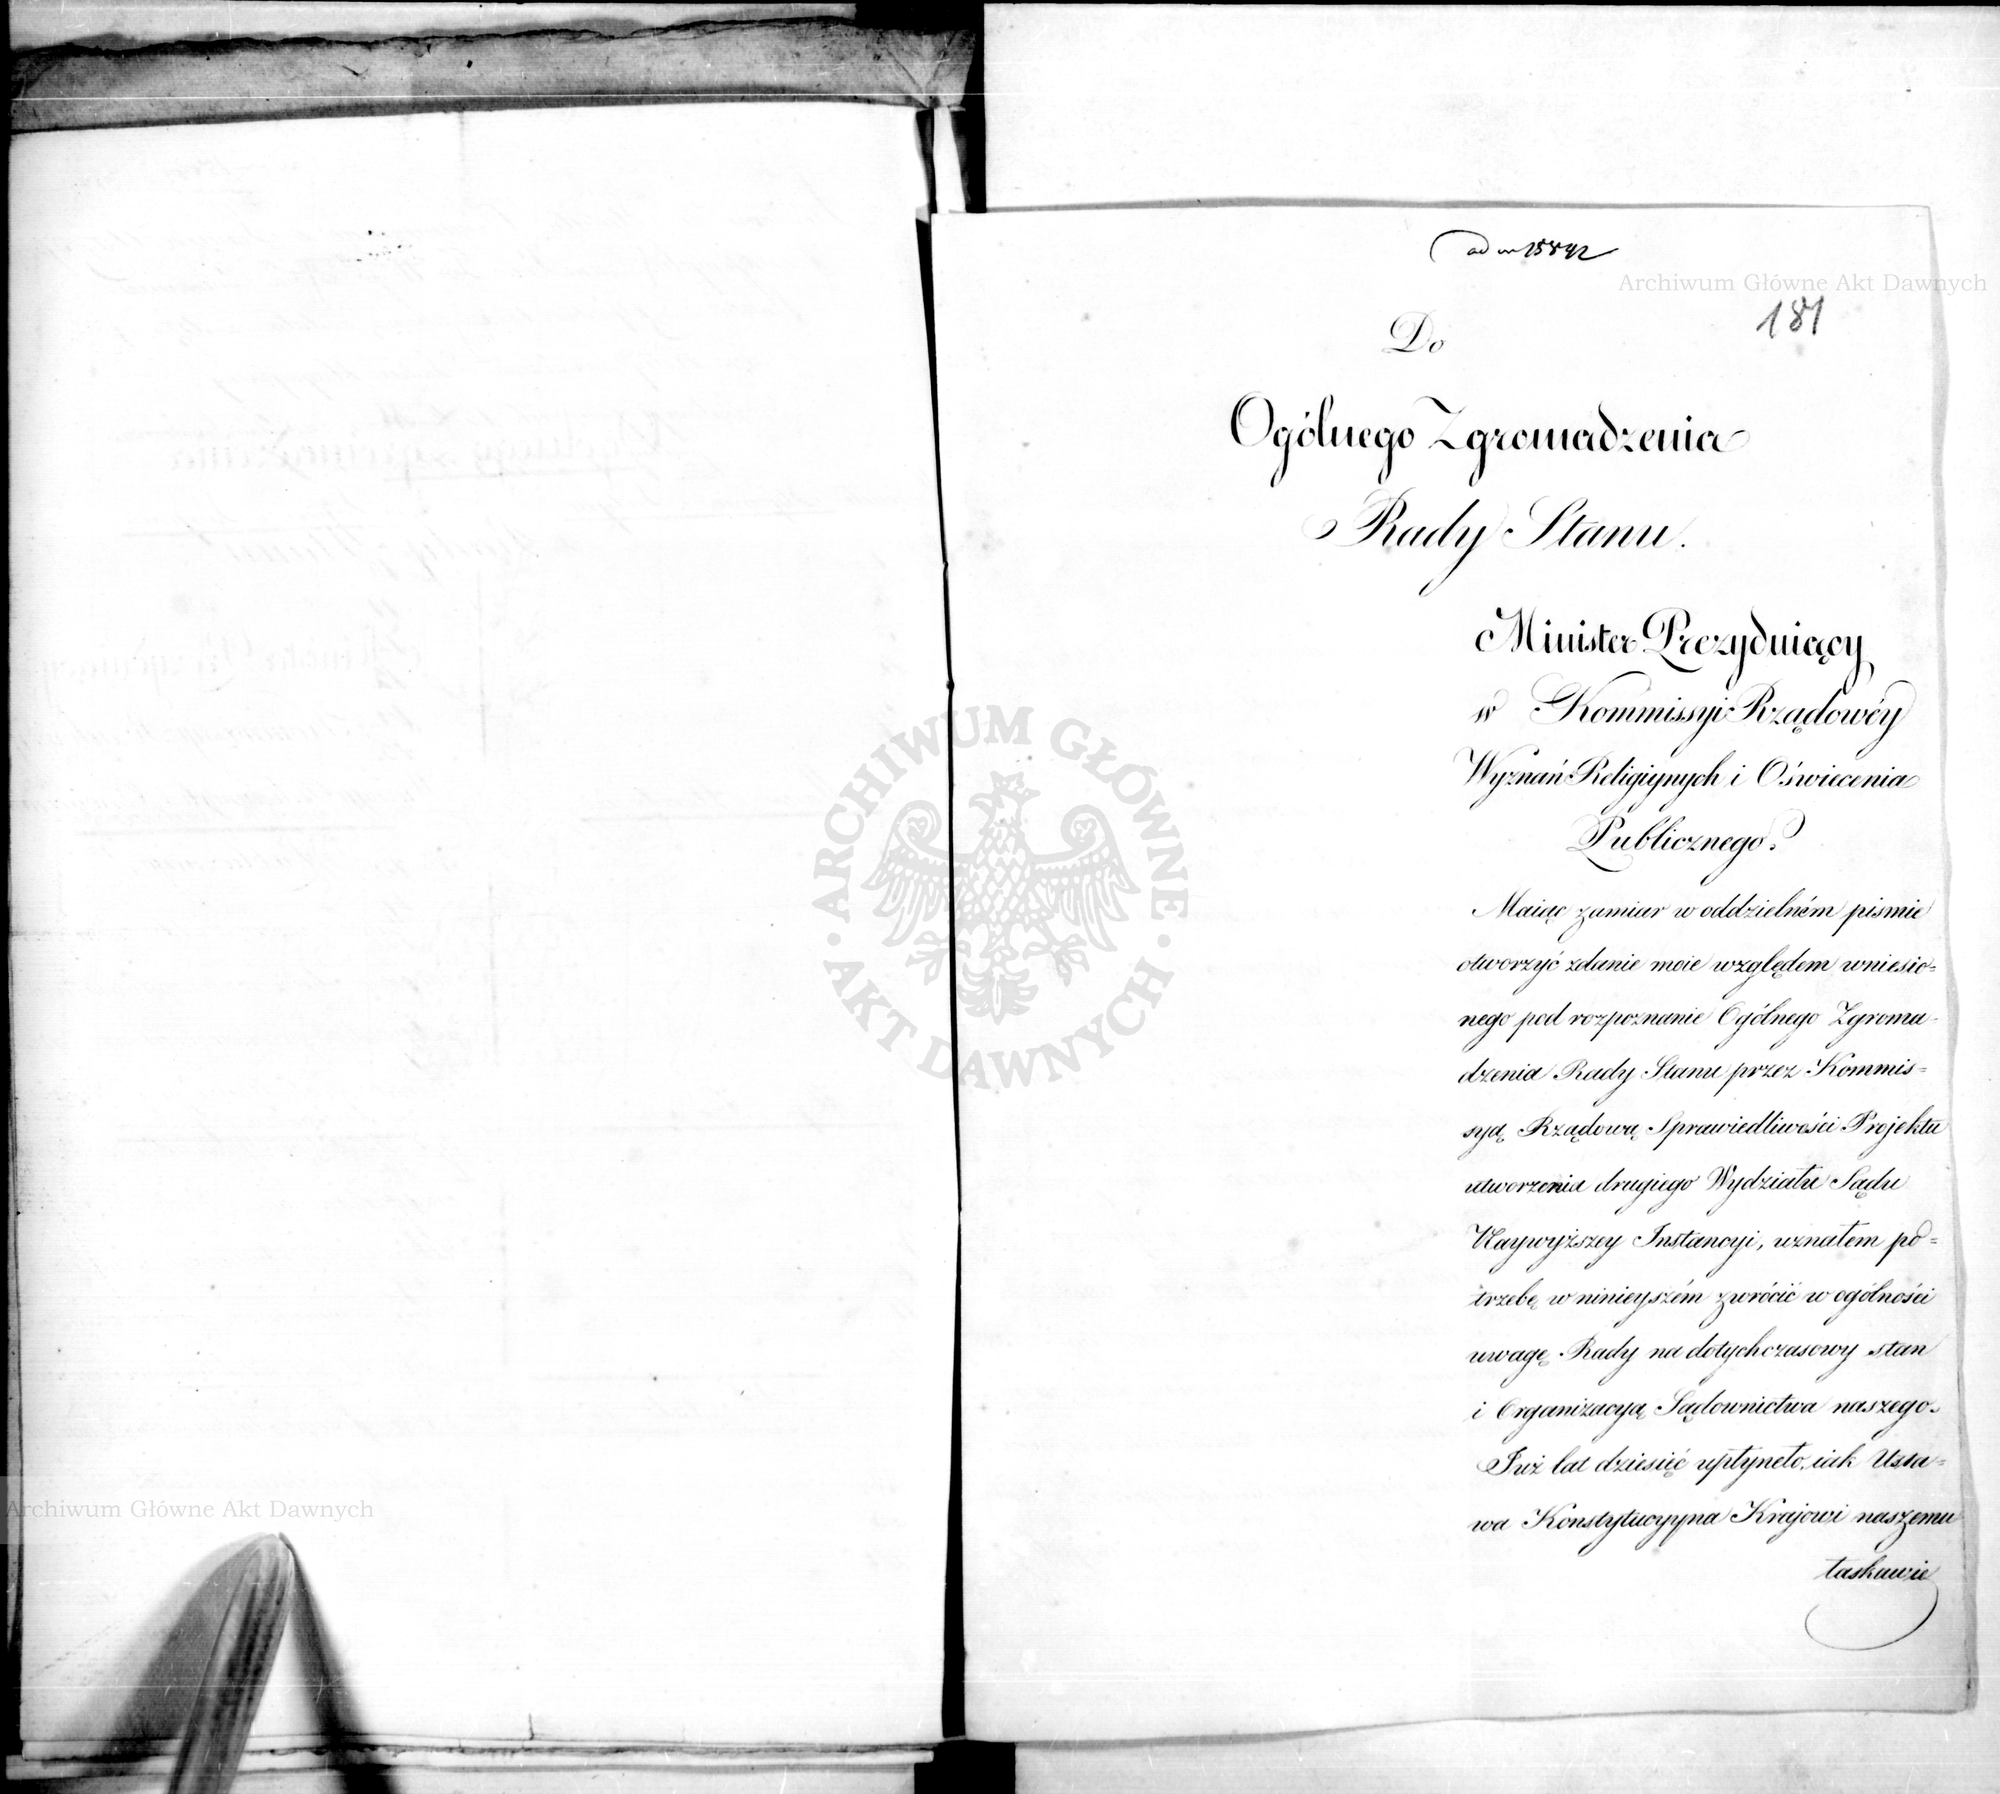 ad nr 15842
181
Do
Ogólnego Zgromadzenia
Rady Stanu.
Minister Prezyduiący
w Kommissyi Rządowéy
Wyznań Religiynych i Oświecenia
Publicznego.
Maiąc zamiar w oddzielném pismie
otworzyć zdanie moie względem wniesio=
nego pod rozpoznanie Ogólnego Zgroma-
dzenia Rady Stanu przez Kommis=
syą Rządową Sprawiedliwości Projektu
utworzenia drugiego Wydziału Sądu
Naywyższey Instancyi, uznałem po=
trzebę w ninieyszém zwrócić w ogólności
uwagę Rady na dotychczasowy stan
i Organizacyą Sądownictwa naszego.
Już lat dziesięć upłyneło, iak Usta=
wa Konstytucyyna Krajowi naszemu
łaskawie
Archiwum Główne Akt Dawnych
ARCHIWUM GŁÓWNE
AKT DAWNYCH
Archiwum Główne Akt Dawnych